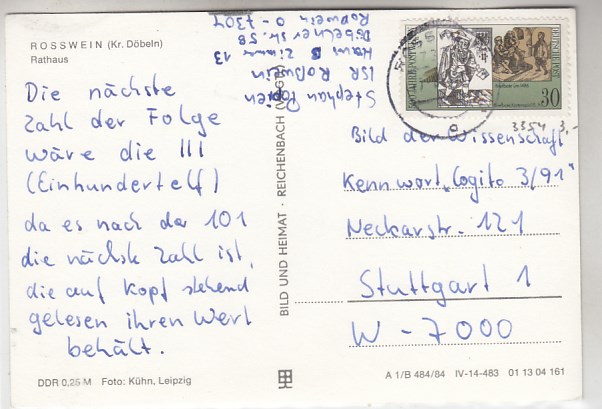 ROSSWEIN (Kr. Döbeln)
Rathaus
Die nächste
Zahl der Folge
wäre die 111
(Einhundertelf)
da es nach der 101
die nächste Zahl ist,
die auf Kopf stehend
gelesen ihren Wert
behält.
DDR 0,25 M Foto: Kühn, Leipzig
Stephan
ISR Roßwein
Haus B Zimmer 13
Döbelner Str. 58
Roßwein O-7304
BILD UND HEIMAT · REICHENBACH (VOGTL)
30
3354 3,-
Bild der Wissenschaft
Kennwort „Cogito 3/91"
Neckarstr. 121
Stuttgart 1
W-7000
A 1/B 484/84 IV-14-483 01 13 04 161